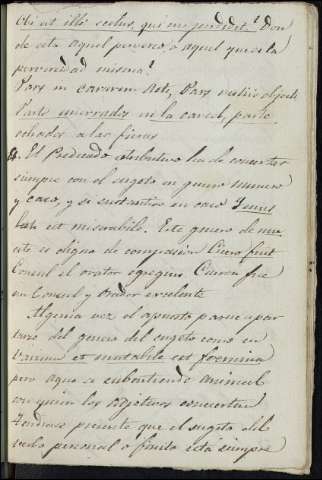 Ubi est ille scelus, qui me perdidit? Don
de esta aquel perverso, o aquel que es la
perversidad misma?
Pars in carcerem acti, Pars vestiis objecti
Parte encerrados en la carcel, parte
echados a las fieras
4. El Predicado atributivo ha de concertar
siempre con el sugeto en genero numero
y caso, y si sustantivo en caso
est miserabile. Este genero de mu
erte es digno de compasion Cicero fuit
Consul et orator egregius. Ciceron fue
un Consul y Orador excelente
Alguna vez el apuesto parece apar
tarse del genero del sugeto como en
Varium et mutabile est foemina
pero aqui se subentiende animal
con quien los adjetivos conciertan
Tendrase presente que el sugeto del
verbo personal o finito está siempre